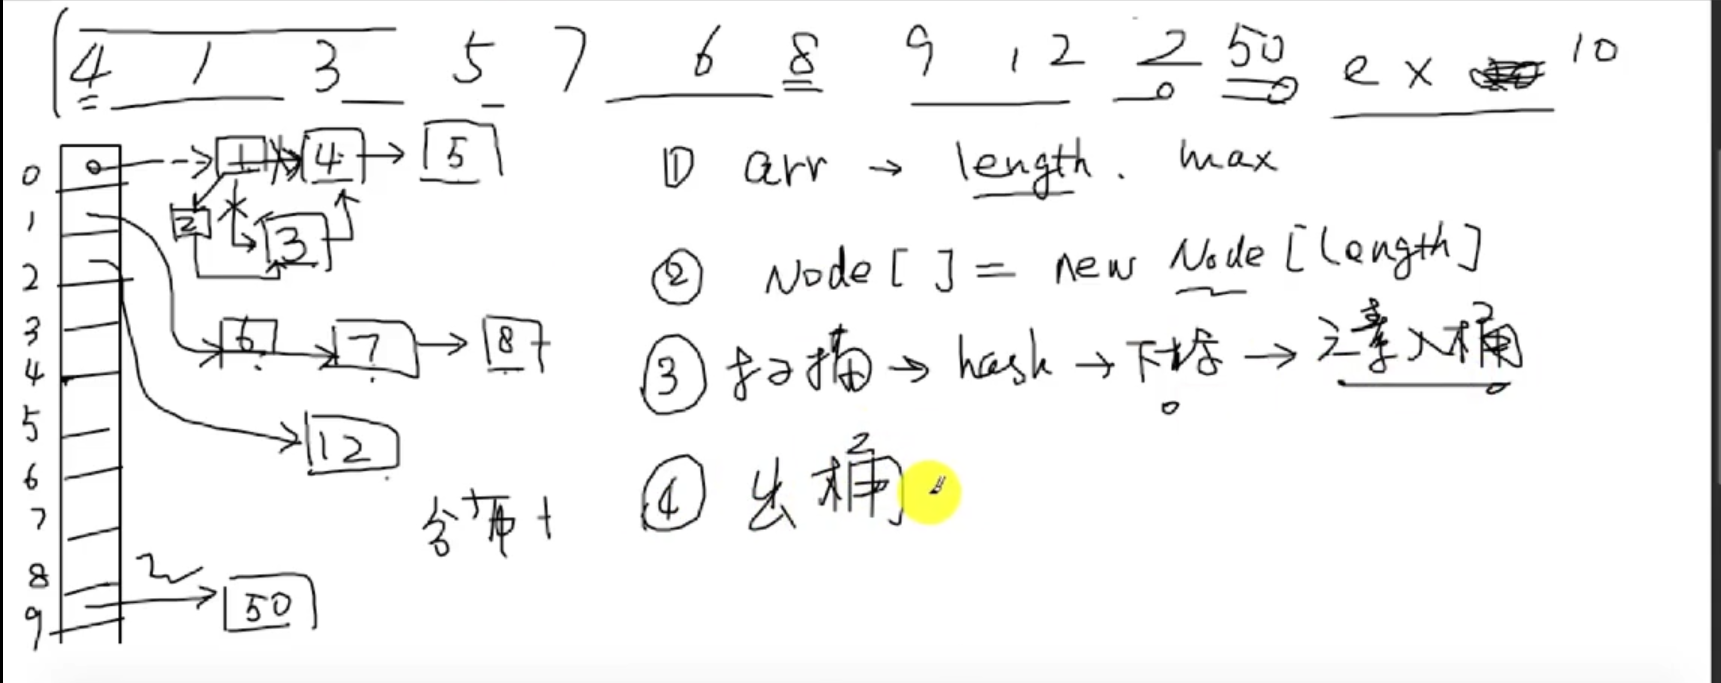 4 1 3 5 7 6 8 9 12 2 50 ex 10
0 1 4 5
① arr → length. max
1 2 3
② Node[ ] = new Node[length]
2
3 6 7 8
③ 扫描 → hash → 下标 → 入桶
4
5 12
6
④ 出桶
7
8
9 50